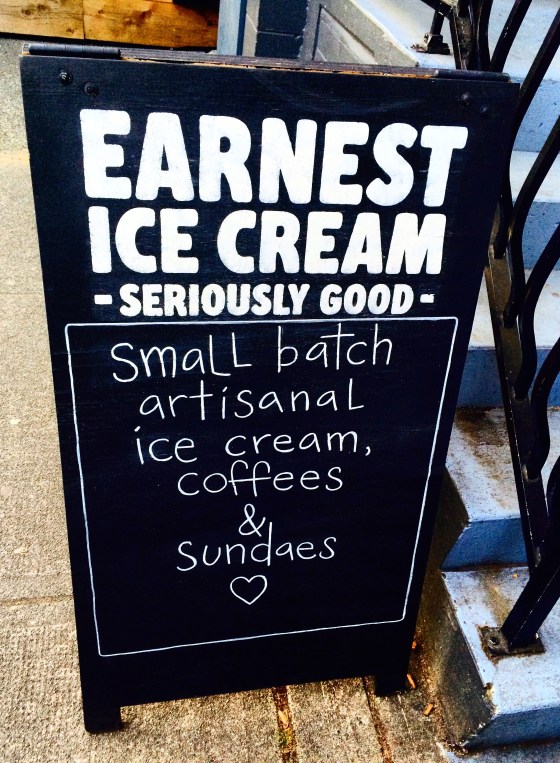 EARNEST
ICE CREAM
- SERIOUSLY GOOD -
small batch
artisanal
ice cream,
coffees
&
sundaes
♡